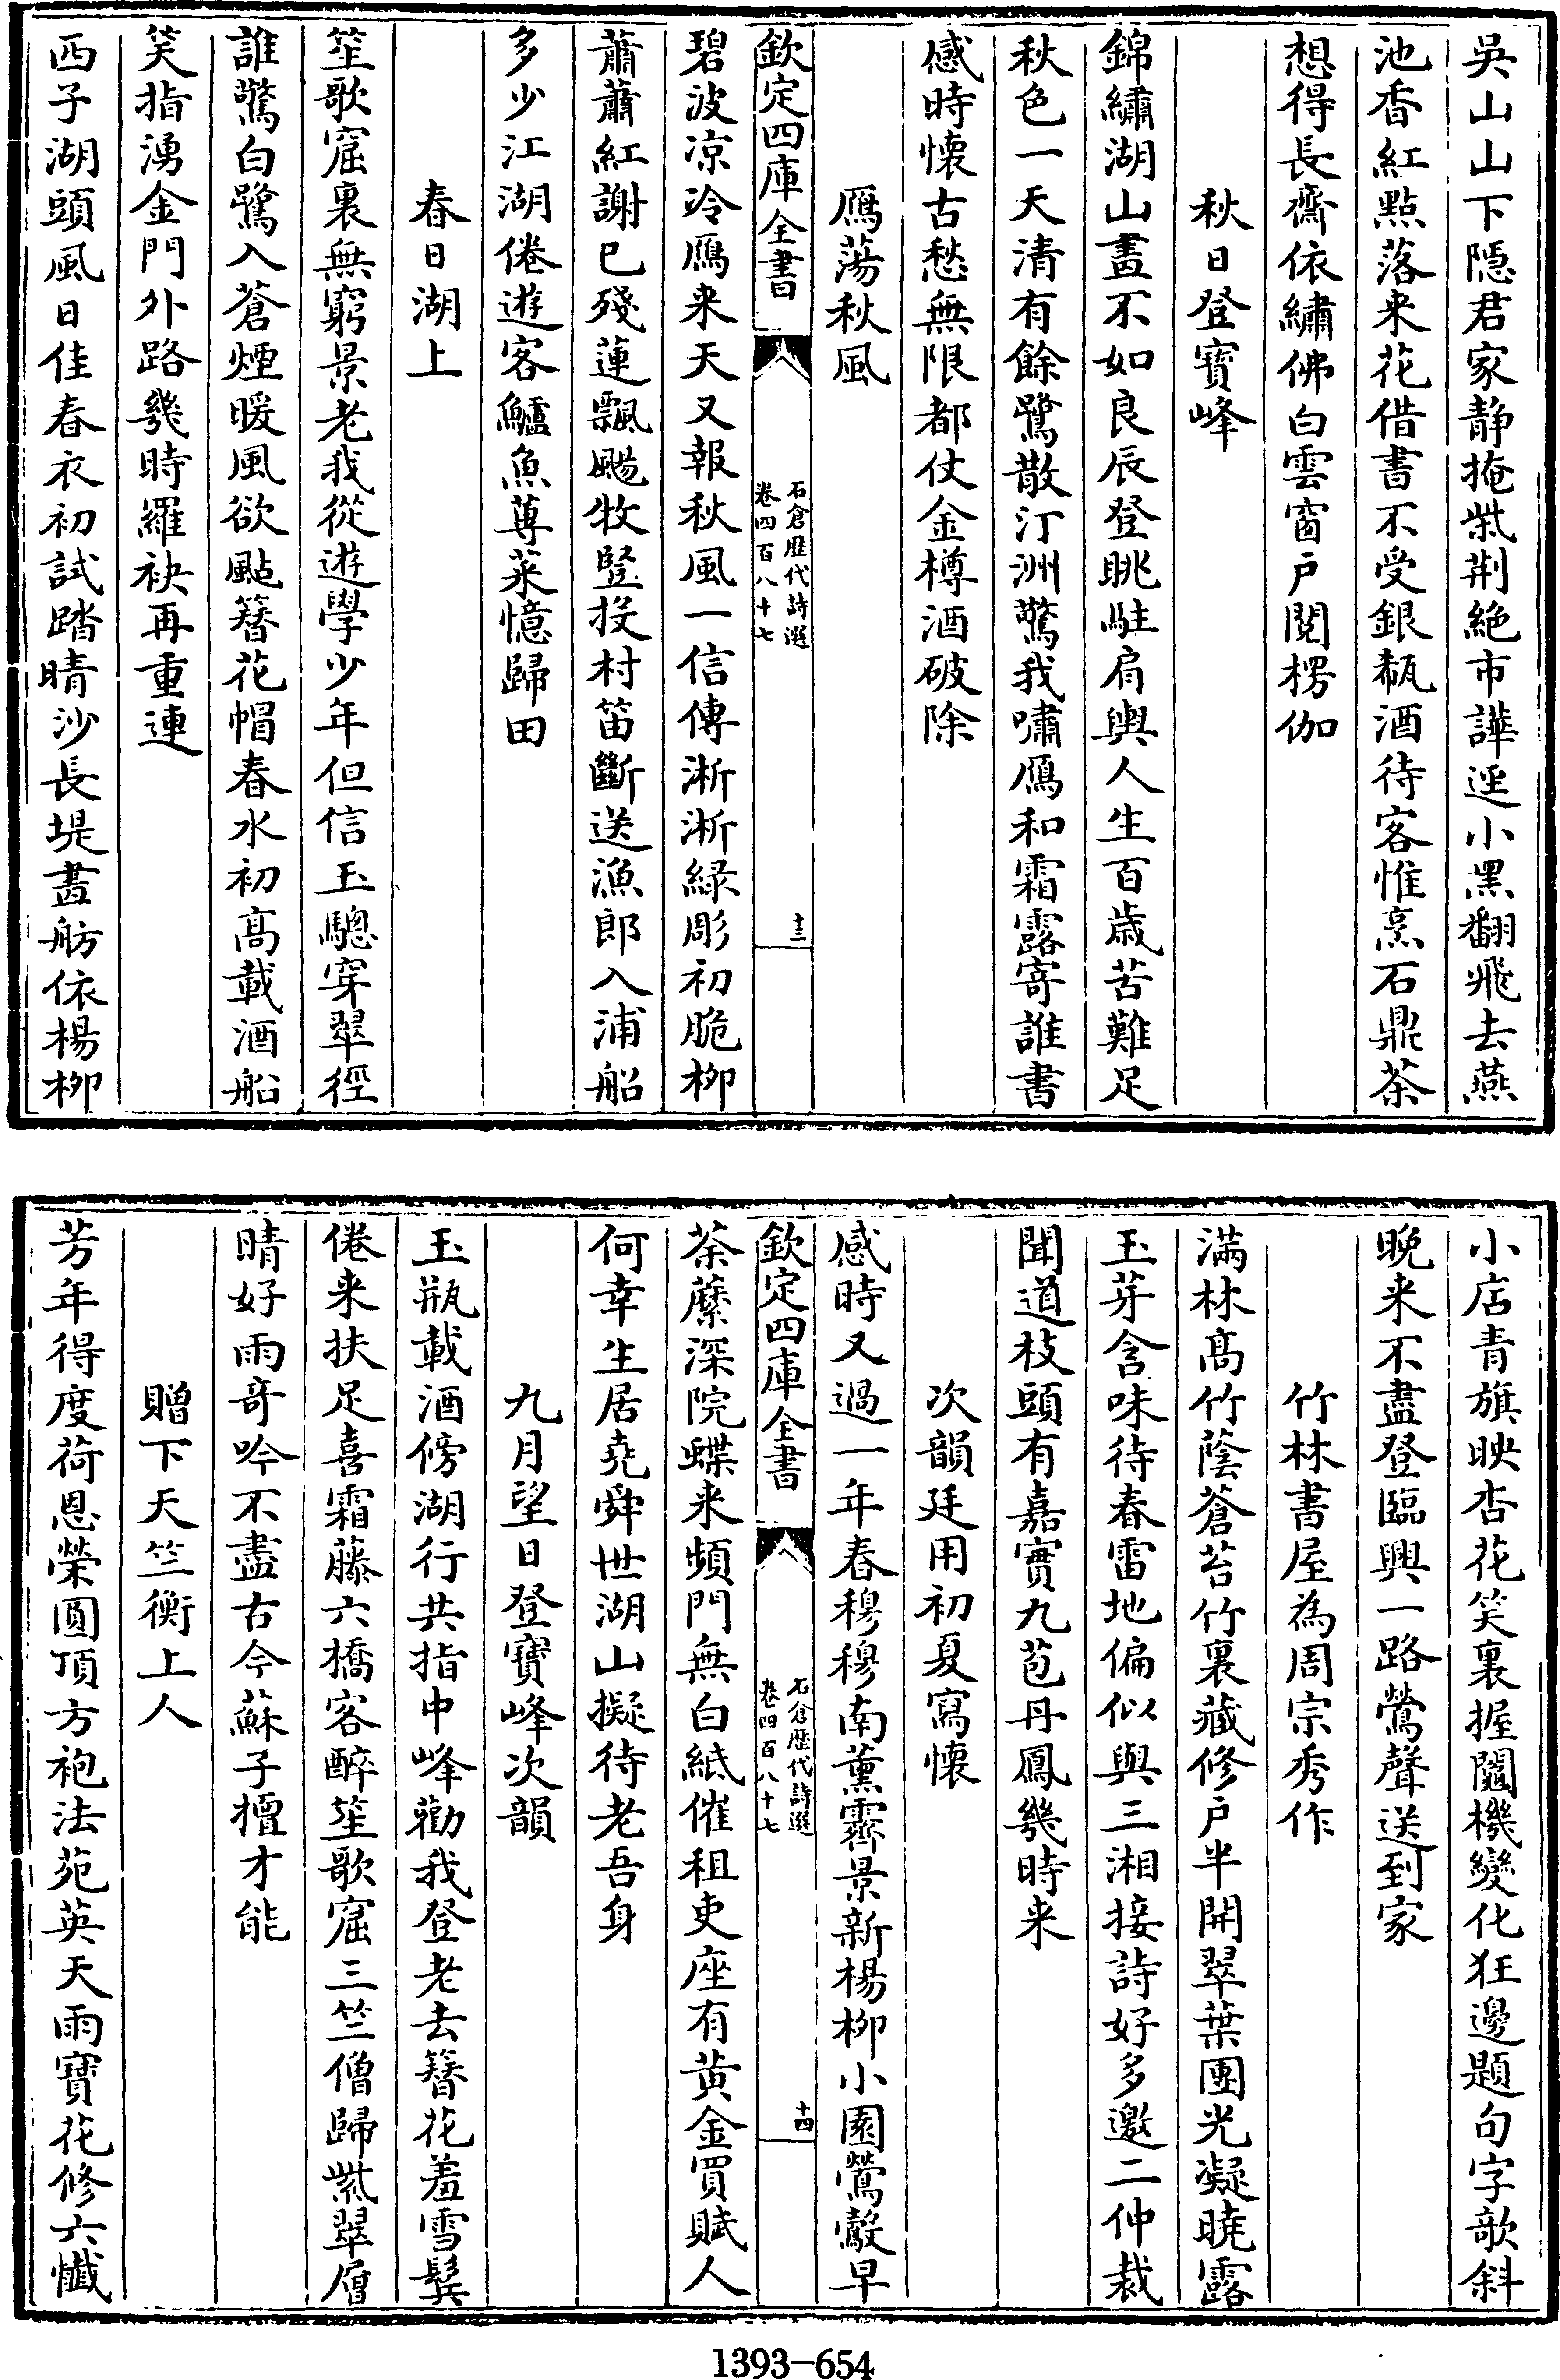 吳山山下隠君家静掩柴荆絶市譁逕小黑翻飛去燕
池香紅點落来花借書不受銀瓻酒待客惟烹石鼎茶
想得長齋依繡佛白雲窗戸閲楞伽
秋日登寶峰
錦繡湖山畫不如良辰登眺駐肩輿人生百歲苦難足
秋色一天清有餘鷺散汀洲驚我嘯鴈和霜露寄誰書
感時懷古愁無限都仗金樽酒破除
鴈蕩秋風
欽定四庫全書
石倉歴代詩選
卷四百八十七
十三
碧波凉冷鴈来天又報秋風一信傳淅淅緑彫初脆栁
蕭蕭紅謝已殘蓮飄颺牧豎投村笛斷送漁郎入浦船
多少江湖倦遊客鱸魚蓴菜憶歸田
春日湖上
笙歌窟裏無窮景老我從遊學少年但信玉驄穿翠徑
誰驚白鷺入蒼煙暖風欲颭簪花帽春水初髙載酒船
笑指湧金門外路幾時羅袂再重連
西子湖頭風日佳春衣初試踏晴沙長堤畫舫依楊栁
小店青旗映杏花笑裏握鬮機變化狂邊題句字欹斜
晚来不盡登臨興一路鶯聲送到家
竹林書屋為周宗秀作
滿林髙竹蔭蒼苔竹裏藏修戸半開翠葉團光凝曉露
玉芽含味待春雷地偏似與三湘接詩好多邀二仲裁
聞道枝頭有嘉實九苞丹鳳幾時来
次韻廷用初夏寫懷
感時又過一年春穆穆南薰霽景新楊栁小園鶯鷇早
欽定四庫全書
石倉歴代詩選
卷四百八十七
十四
荼蘼深院蝶来頻門無白紙催租吏座有黄金買賦人
何幸生居堯舜世湖山擬待老吾身
九月望日登寶峰次韻
玉瓶載酒傍湖行共指中峰勸我登老去簪花羞雪鬂
倦来扶足喜霜藤六橋客醉笙歌窟三竺僧歸紫翠層
晴好雨奇吟不盡古今蘇子擅才能
贈下天竺衡上人
芳年得度荷恩榮圓頂方袍法苑英天雨寶花修六懺
1393-654